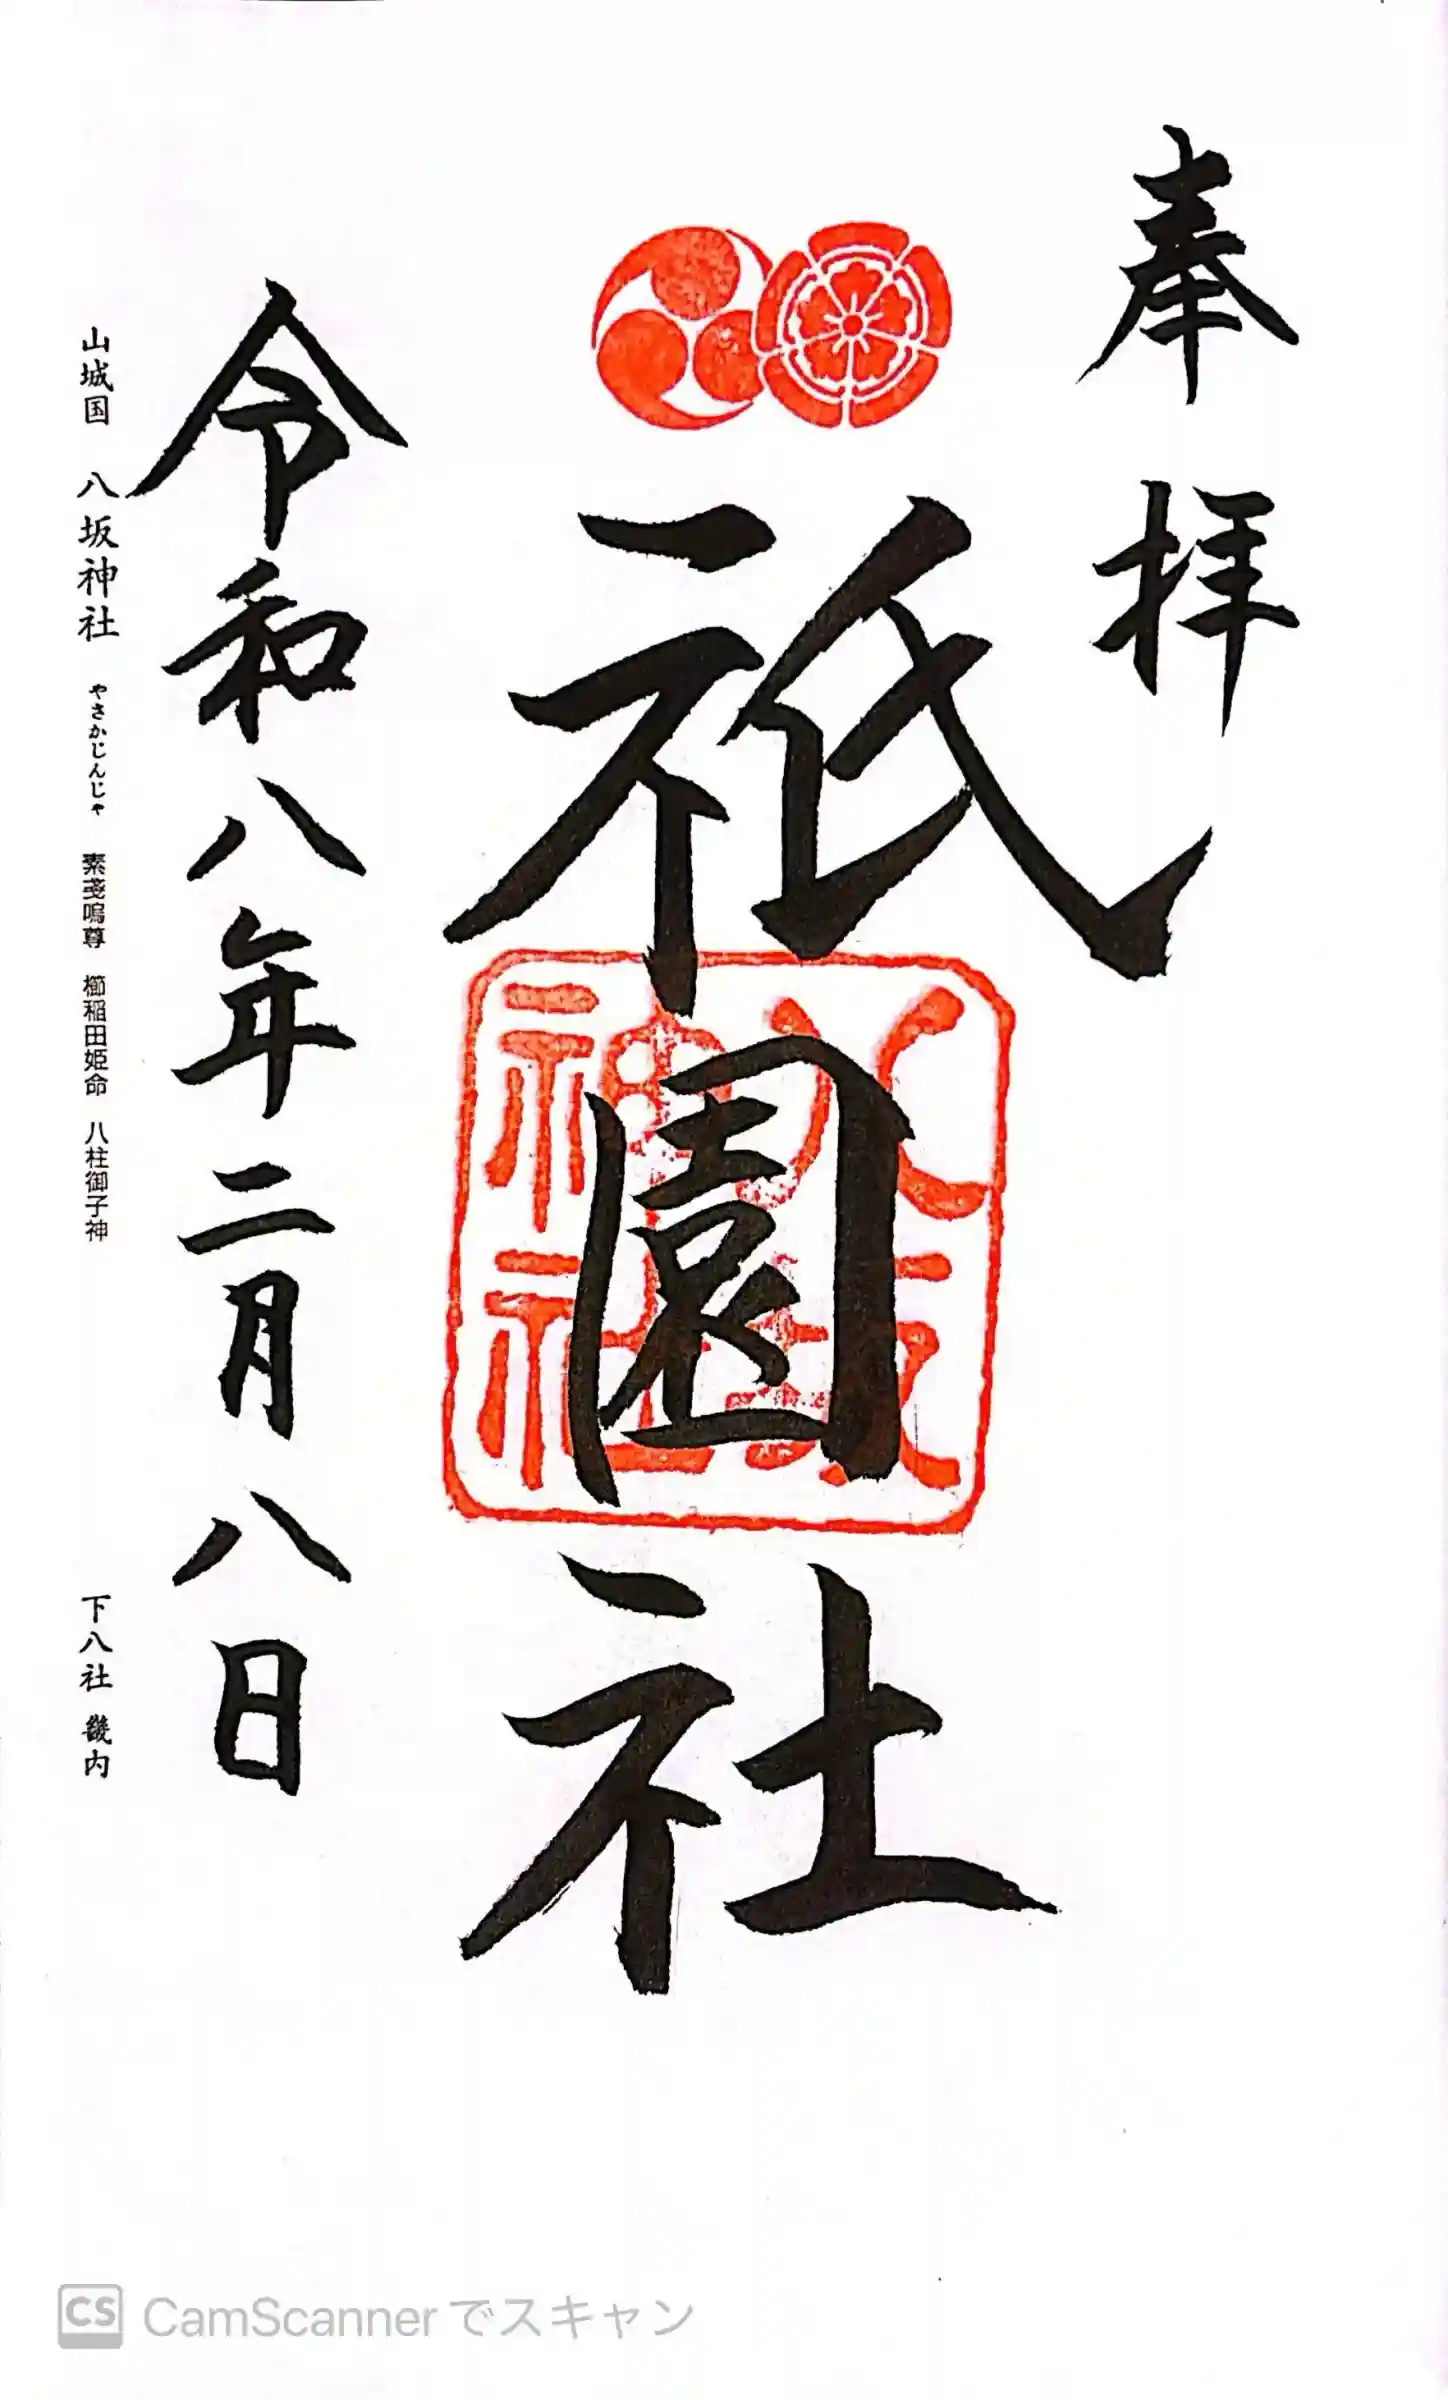 奉拝
祇園社
八坂
神社
令和八年二月八日
山城国 八坂神社 やさかじんじゃ 素戔嗚尊 櫛稲田姫命 八柱御子神 下八社 畿内
CS CamScannerでスキャン